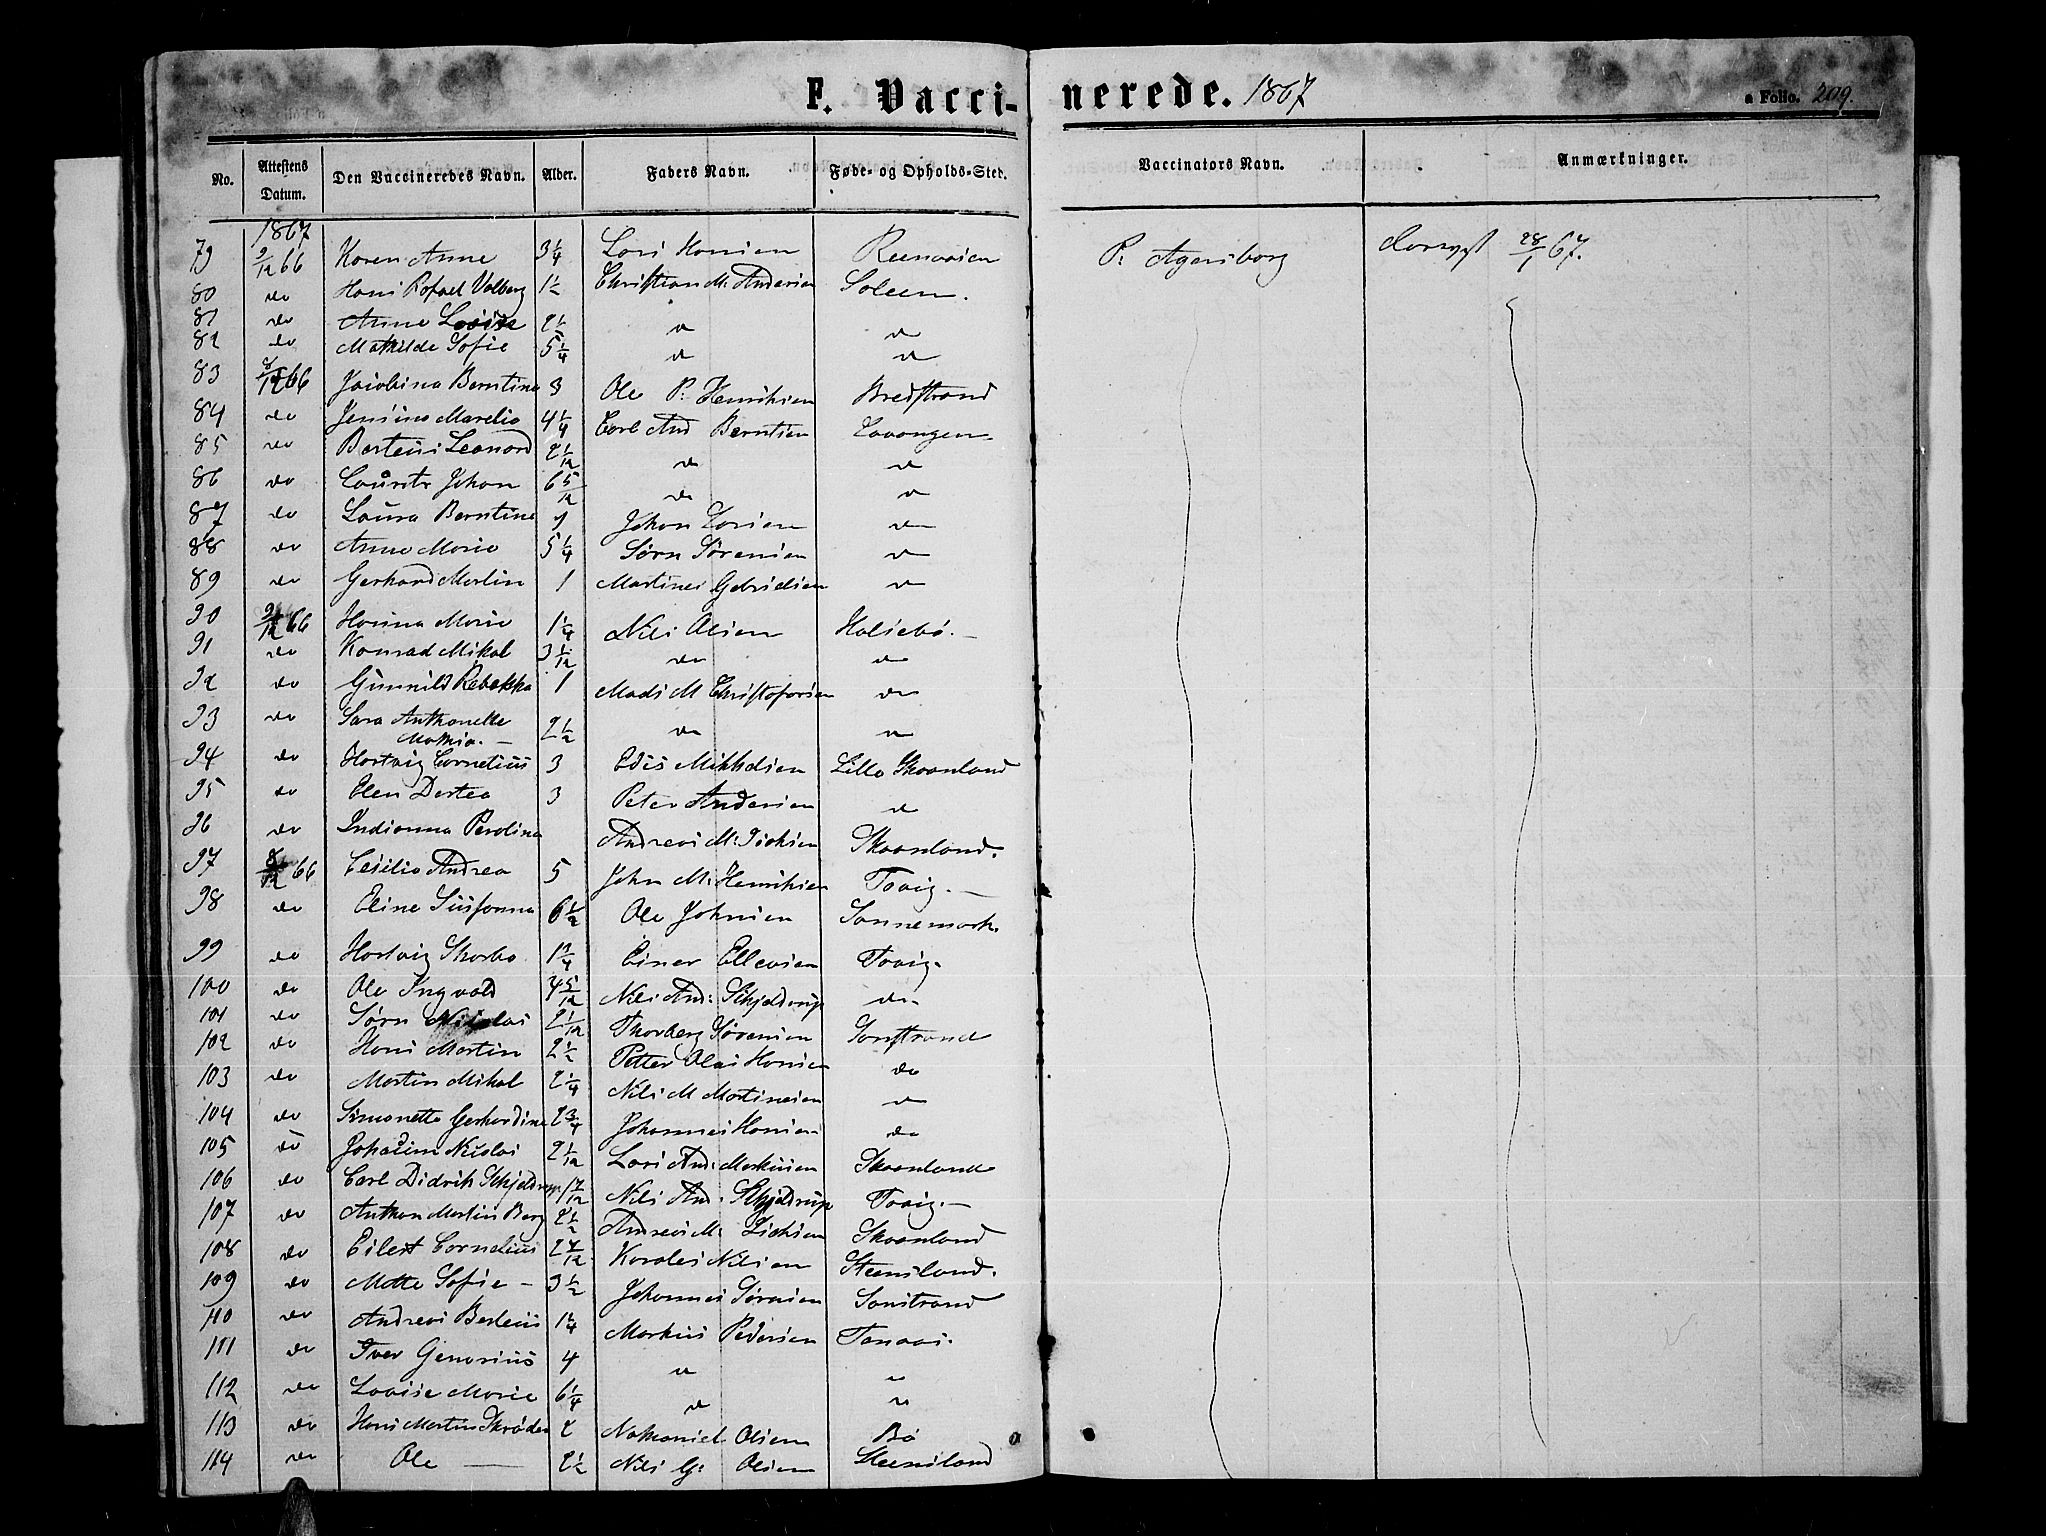 F. Vaccinerede. 1867
a Folio. 209.
No. Attestens Datum. Den Vaccineredes Navn. Alder. Faders Navn. Føde- og Opholds-Sted. Vaccinators Navn. Anmærkninger.
1867
79 9/12 66 Karen Anne 3 1/4 Lars Hansen P. Agersborg 28/1 67.
80 do Hans Rafael Valberg 1 1/2 Christian M. Andersen
81 do Anne Lovise 2 1/2 do do
82 do Mathilde Sofie 5 1/4 do do
83 8/12 66 Jacobina Berntina 3 Ole P: Henriksen Bredstrand
84 do Jensine Marelia 4 1/4 Carl And Berntsen
85 do Berteus Leonard 2 1/12 do do
86 do Laurits Johan 6 5/12 do do
87 do Laura Berntine Johan Larsen do
88 do Anne Marie 5 1/4 Sørn Sørensen do
89 do Gerhard Martin 1 Martines Gabrielsen do
90 9/12 66 Hansina Marie 1 1/4 Nils Olsen Halsebø.
91 do Konrad Mikal 3 1/12 do do
92 do Gunnild Rebekka 1 Mads M Christofersen do
93 do Sara Anthonette Mathia. 2 1/2 do do
94 do Hartvig Cornelius 3 Edis Mikkelsen Lille Skaanland
95 do Elen Dortea 3 Peter Andersen do
96 do Indianna Perolina Andreas M: Skaanland.
97 8/12 66 Cesilia Andrea 5 John M: Henriksen Tovig.
98 do Eline Susanna 6 1/2 Ole Johnsen Sannemark.
99 do Hartvig Skarbo 1 3/4 Einer Ellevsen Tovig.
100 do Ole Ingvald 4 5/12 Nils And: Schjeldrup do
101 do Sørn Nicolai 2 1/12 Thorberg Sørensen Sandstrand
102 do Hans Martin 2 1/2 Petter Olai Hansen do
103 do Martin Mikal 2 1/4 Nils M Martinsen do
104 do Simonette Gerhardine 2 3/4 Johannes Hansen do
105 do Joakim Nicolai 2 1/12 Lars And: Markusen Skaanland
106 do Carl Didrik Schjeldrup 1 7/12 Nils And. Schjeldrup Tovig.
107 do Anthon Martin Berg 2 1/2 Andreas M. Skaanland
108 do Eilert Cornelius 2 7/12 Karoles Nilsen Steensland.
109 do Mette Sofie 3 1/2 Johannes Sørnsen Sanstrand
110 do Andreas Berteus 1 1/4 Markus Pedersen
111 do Iver Genorius 4 do
112 do Lovise Marie 6 1/4 do
113 do Hans Martin Skrøder 2 Nathaniel Olsen Bø
114 do Ole 2 1/2 Nils G: Olsen Steensland